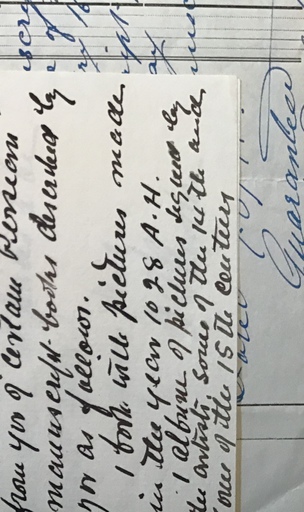 from you of certain Persian
manuscript books described by
you as follows.
1 book with pictures made
in the year 1028 A.H.
1 album of pictures signed by
the artists, some of the 14th and
some of the 15th century
Guaranteed